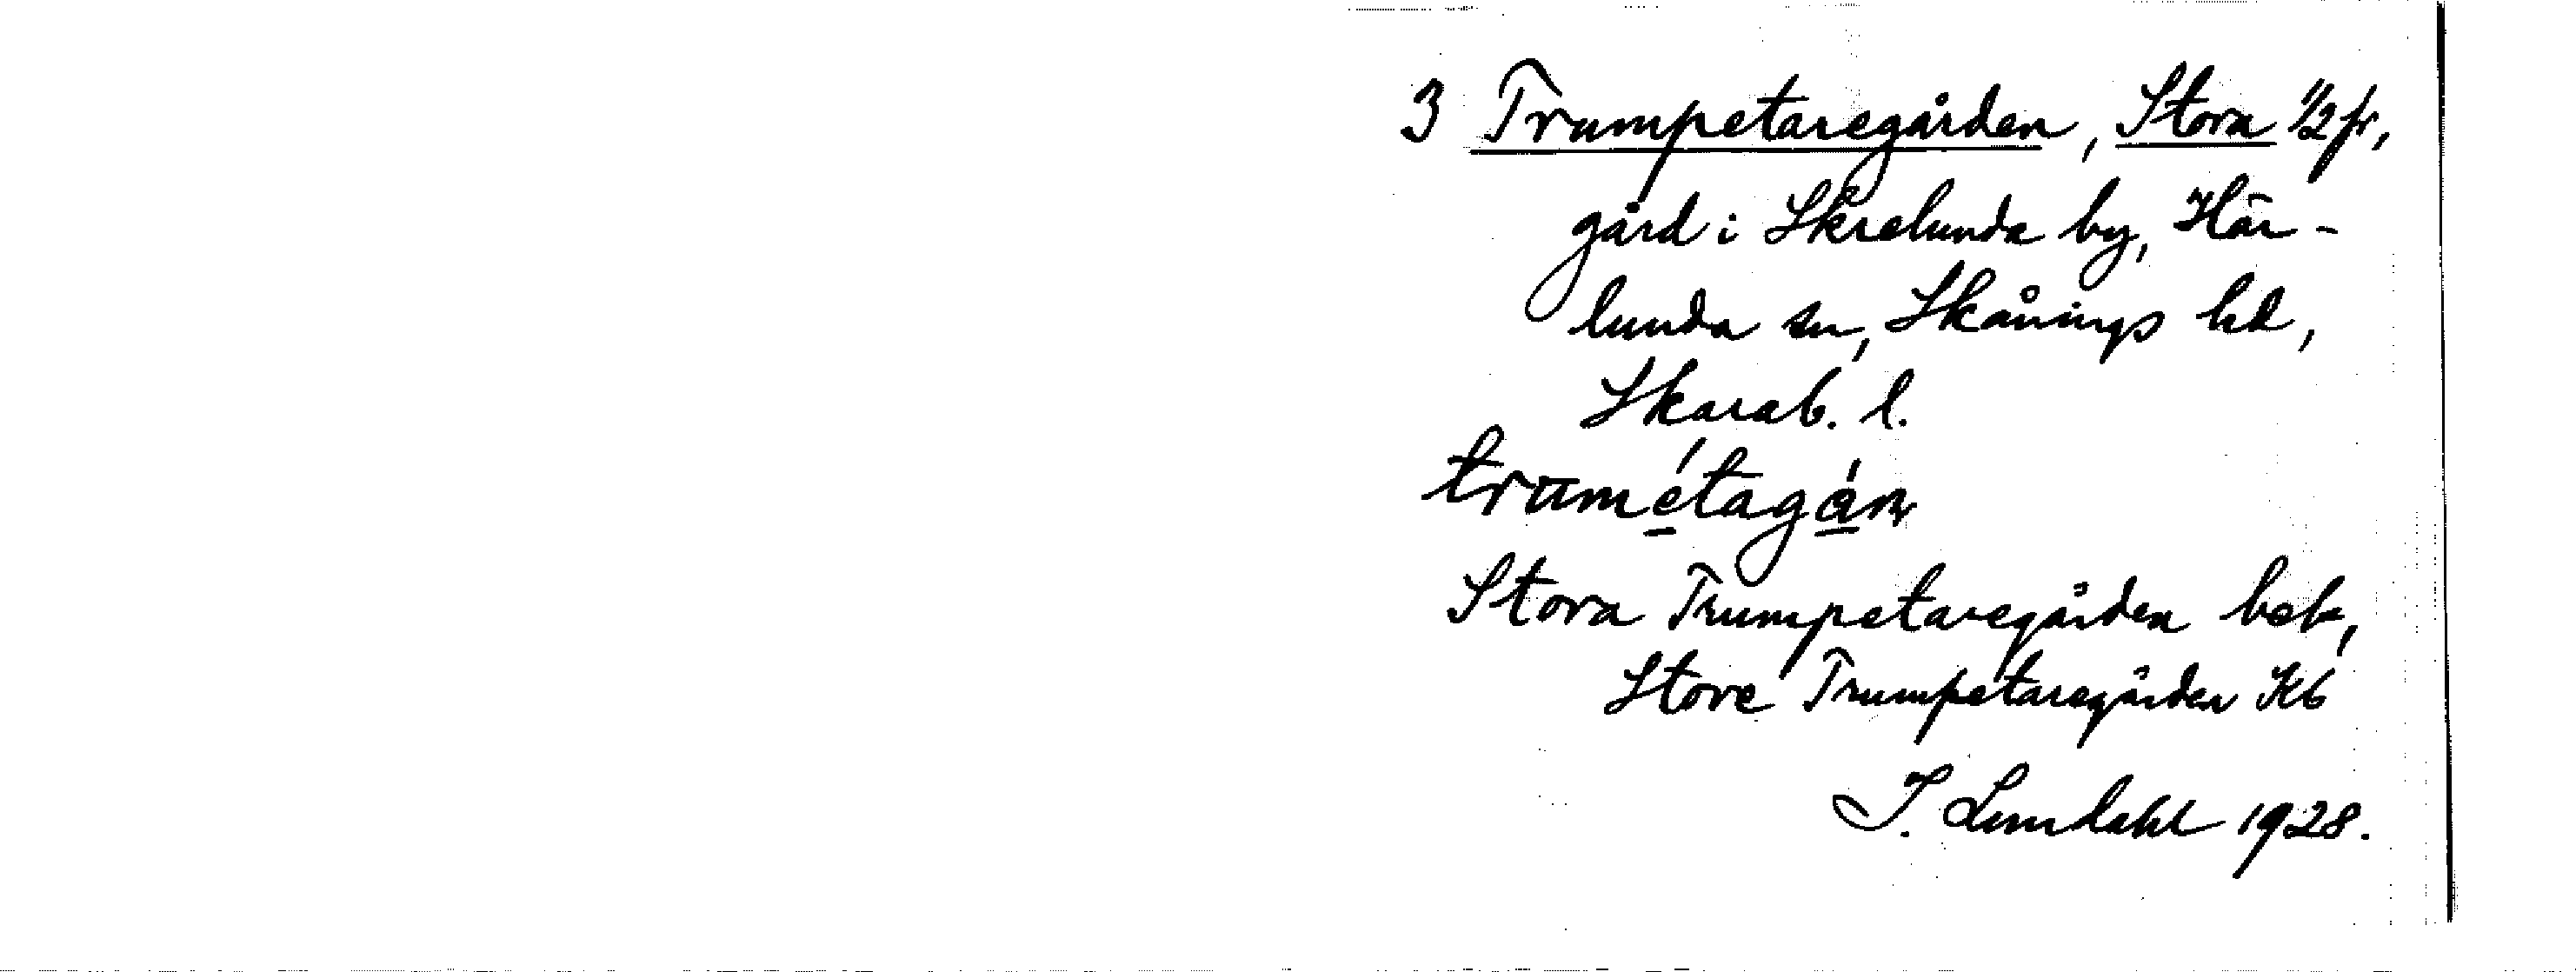 3 Trumpetaregården, Stora 1/2 fr,
gård i Skrelunda by, Här-
lunda sn, Skånings hd,
Skarab. l.
trumétagán
Stora Trumpetaregården bok,
Store Trumpetaregården Kb
I. Lundahl 1928.